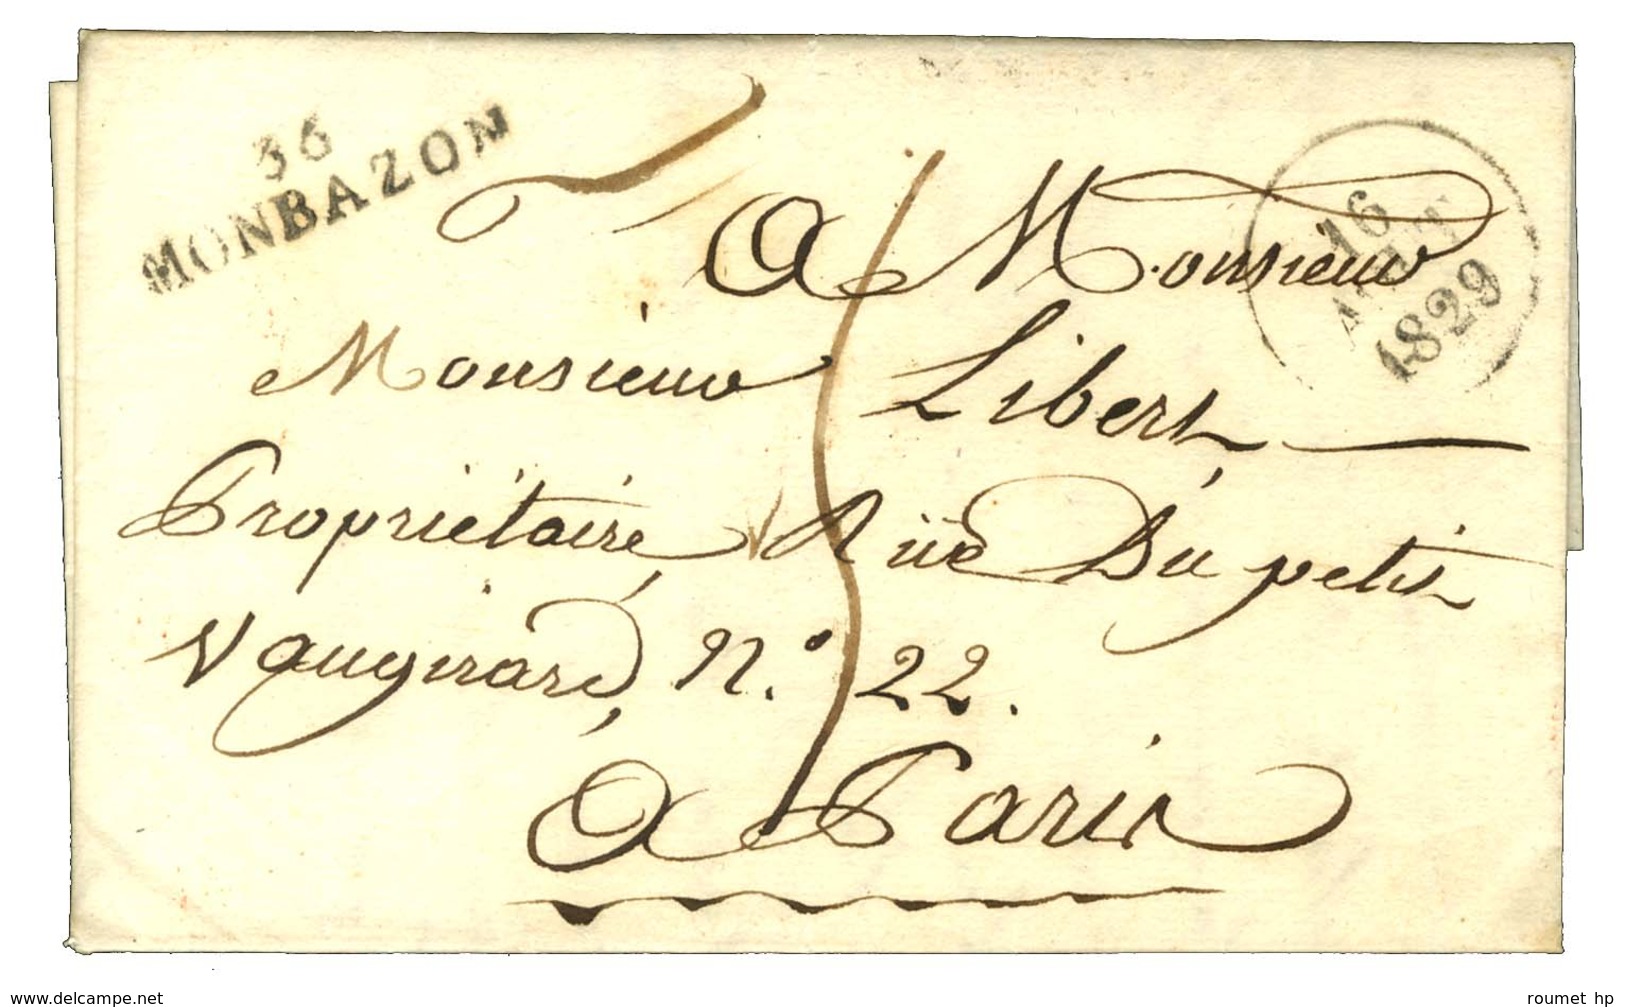 36
MONBAZON
16
AOUT
1829
A Monsieur
Monsieur Libert,
Propriétaire, Rüe Du petit
Vaugirard, N.° 22.
A Paris
www.delcampe.net
roumet hp